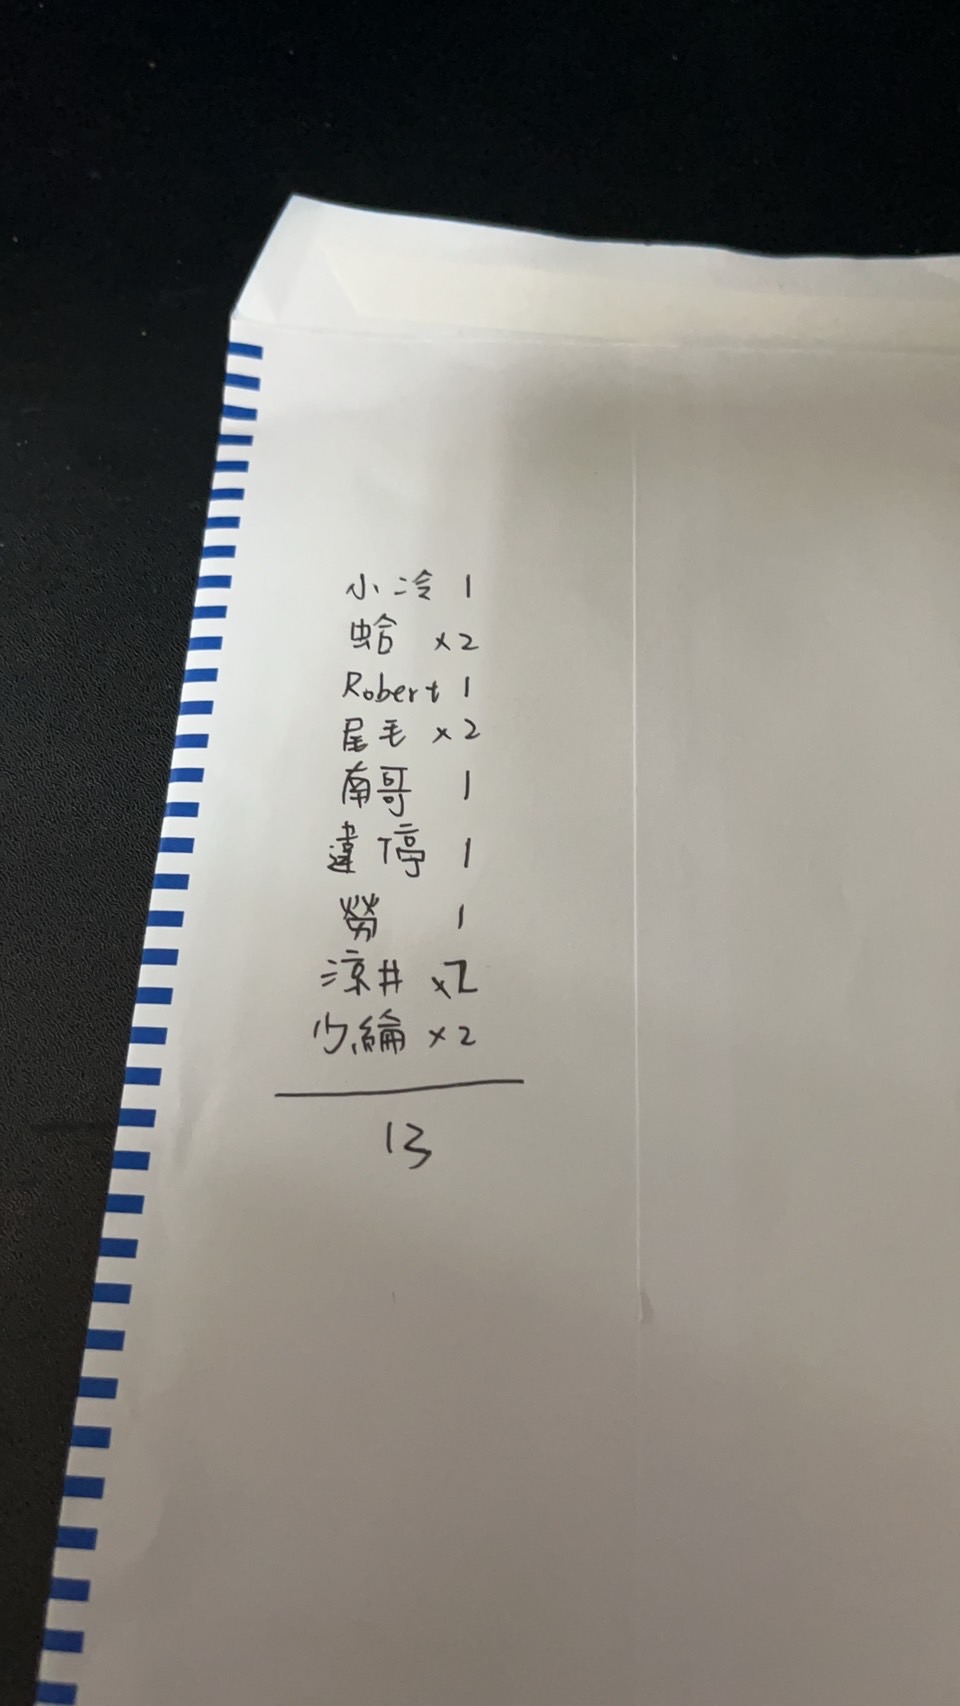 小冷 1
蛤 x2
Robert 1
尾毛 x2
南哥 1
違停 1
勞 1
涼井 x2
少綸 x2
13